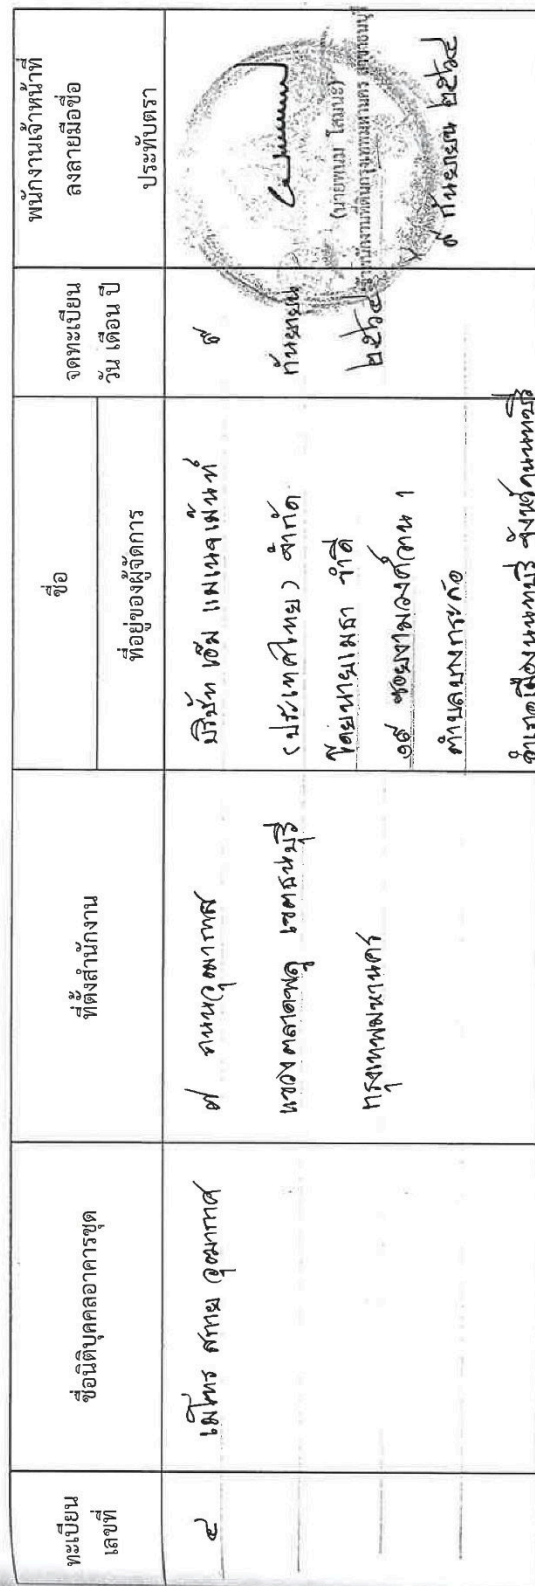 ทะเบียน
เลขที่
ชื่อนิติบุคคลอาคารชุด
ที่ตั้งสำนักงาน
ชื่อ
ที่อยู่ของผู้จัดการ
จดทะเบียน
วัน เดือน ปี
พนักงานเจ้าหน้าที่
ลงลายมือชื่อ
ประทับตรา
๔
เมโทร สกาย วุฒากาศ
๗ ถนนวุฒากาศ
แขวงตลาดพลู เขตธนบุรี
กรุงเทพมหานคร
บริษัท เอ็ม แมเนจเม้นท์
(ประเทศไทย) จำกัด
โดยนายเมธา จำดี
๑๙ ซอยงามวงศ์วาน ๑
ตำบลบางกระสอ
อำเภอเมืองนนทบุรี จังหวัดนนทบุรี
๙
กันยายน
๒๕๖๔
(นายพนม โสมนะ)
เจ้าพนักงานที่ดินกรุงเทพมหานคร สาขาธนบุรี
๙ กันยายน ๒๕๖๔